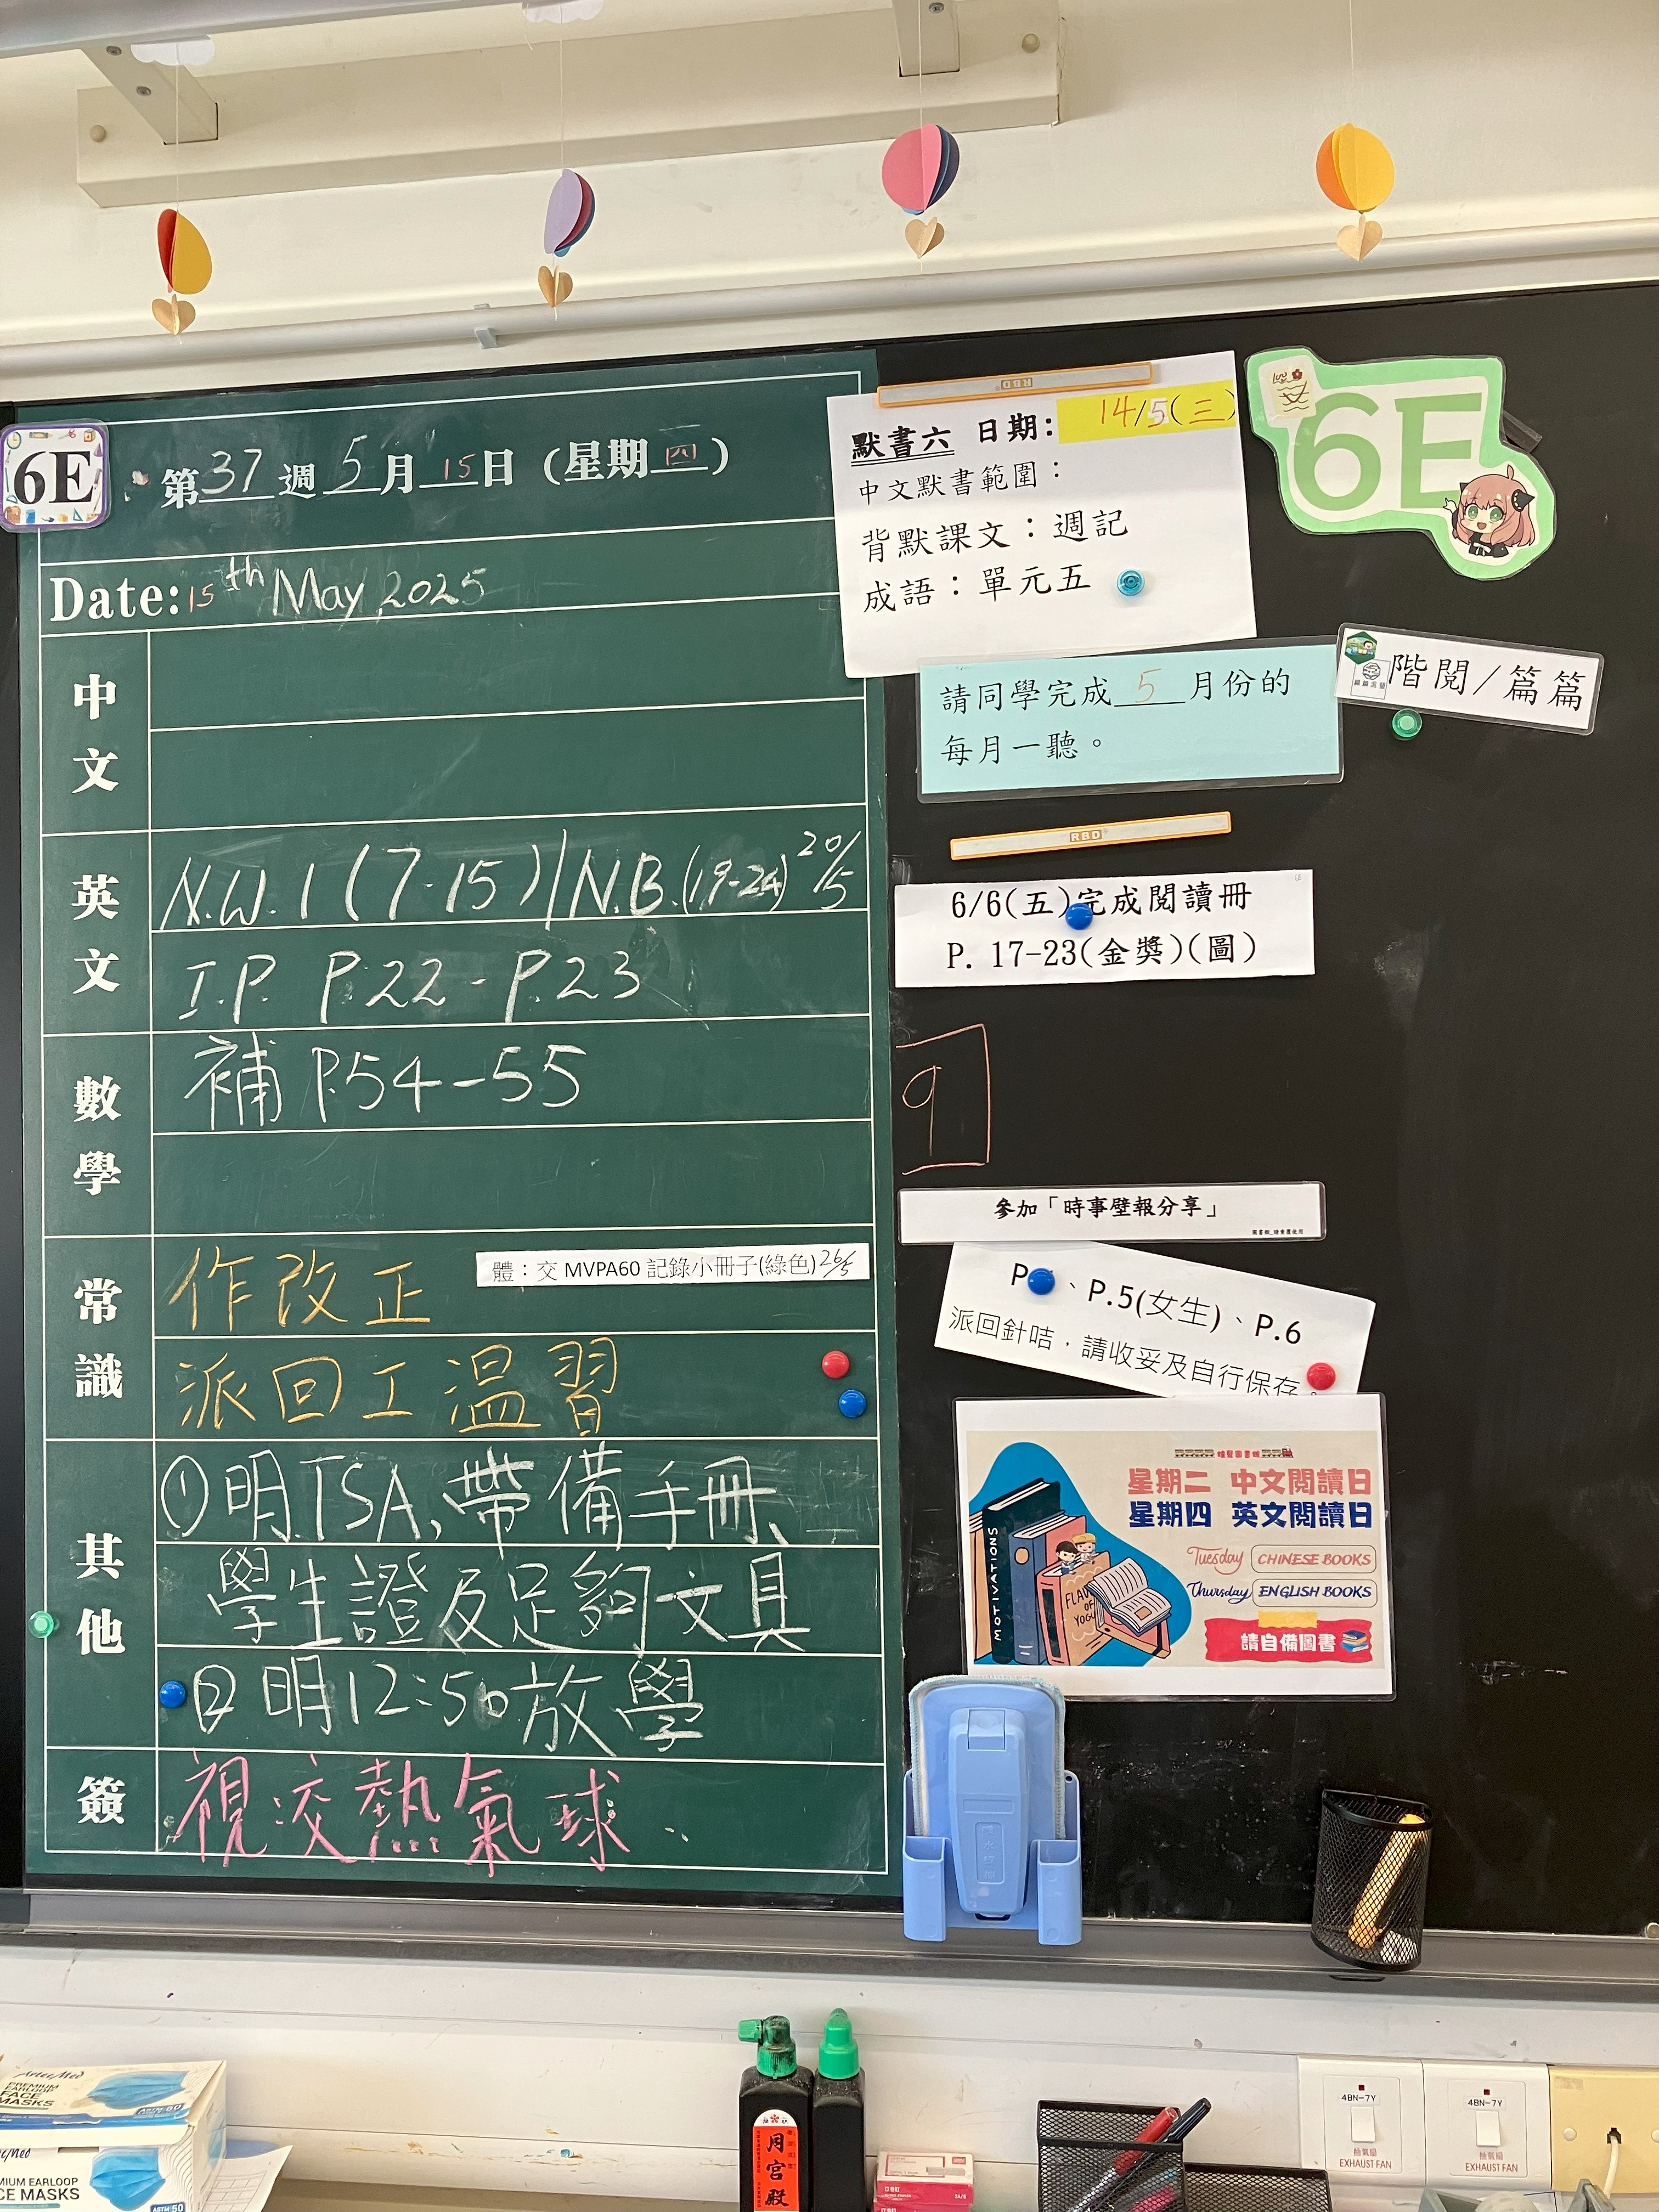 6E
第37週5月15日（星期四）
Date: 15th May, 2025
中文
英文
N.W. 1 (7-15) / N.B. (19-24) 20/5
I.P. P.22 - P.23
數學
補 P.54-55
常識
作改正
體：交 MVPA60 記錄小冊子(綠色) 26/5
派回工溫習
其他
①明TSA,帶備手冊、
學生證及足夠文具
②明12:50放學
簽
視交熱氣球
RBD
默書六 日期: 14/5(三)
中文默書範圍：
背默課文：週記
成語：單元五
6E
請同學完成 5 月份的
每月一聽。
階閱/篇篇
RBD
6/6(五)完成閱讀冊
P. 17-23(金獎)(圖)
9
參加「時事壁報分享」
P 、P.5(女生)、P.6
派回針咭，請收妥及自行保存。
星期二 中文閱讀日
星期四 英文閱讀日
Tuesday CHINESE BOOKS
Thursday ENGLISH BOOKS
請自備圖書
MOTIVATIONS
FLAV
OF
YOGU
ArtecMed
PREMIUM
EARLOOP
FACE
MASKS
ASTM-60
MIUM EARLOOP
CE MASKS
ASTM 50
月宮殿
4BN-7Y
抽氣扇
EXHAUST FAN
4BN-7Y
抽氣扇
EXHAUST FAN